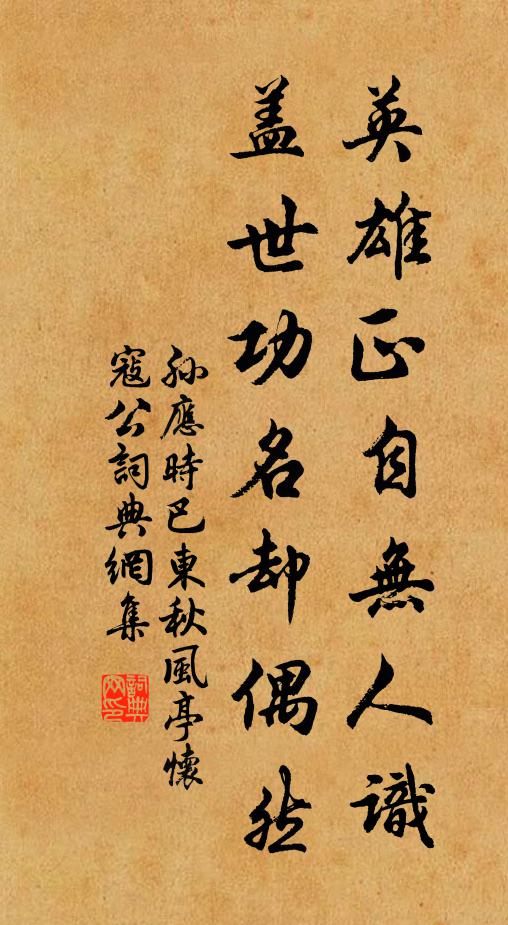 英雄正自無人識
盖世功名却偶然
孙應時巴東秋風亭懷
寇公詞典網集
詞典
网印